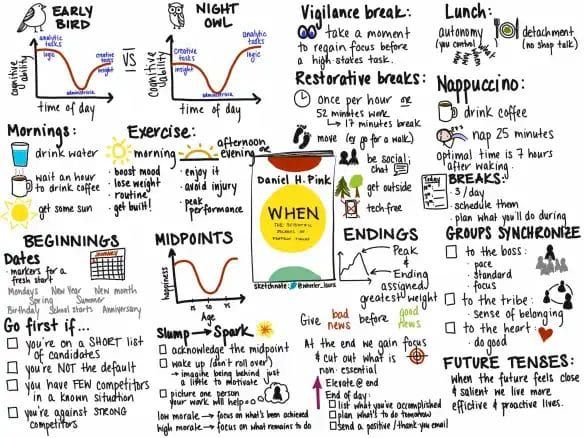 EARLY
BIRD
analytic
tasks
logic
creative
tasks
insight
administrative
cognitive
ability
time of day
VS
NIGHT
OWL
Creative
tasks
insight
analytic
tasks
logic
administrative
cognitive
ability
time of day
Vigilance break:
take a moment
to regain focus before
a high-stakes task.
Restorative breaks:
once per hour or
52 minutes work
↳ 17 minutes break
move (eg go for a walk)
be social;
chat
get outside
tech-free
Lunch:
autonomy
(you control)
detachment
(no shop talk)
Nappuccino:
drink coffee
nap 25 minutes
optimal time is 7 hours
after waking.
Today
BREAKS:
- 3/day
- schedule them
- plan what you'll do during
Mornings:
drink water
wait an hour
to drink coffee
get some sun
Exercise:
morning
- boost mood
- lose weight
- routine
- get built!
afternoon
evening
- enjoy it
- avoid injury
- peak
performance
Daniel H. Pink
WHEN
THE SCIENTIFIC
SECRETS OF
PERFECT TIMING
sketchnote
BEGINNINGS
Dates
- markers for a
fresh start
JANUARY
Mondays New Year New month
Spring Summer
Birthday School starts Anniversary
Go first if...
you're on a SHORT list
of candidates
you're NOT the default
you have FEW competitors
in a known situation
you're against STRONG
competitors
MIDPOINTS
happiness
Age
Slump → Spark
acknowledge the midpoint
wake up (don't roll over)
→ imagine being behind just
a little to motivate
picture one person
your work will help
low morale → focus on what's been achieved
high morale → focus on what remains to do
ENDINGS
Peak
&
Ending
assigned
greatest weight
Give bad news before good news
At the end we gain focus
& cut out what is
non-essential
Elevate @ end
End of day:
list what you've accomplished
plan what's to do tomorrow
send a positive / thank you email
GROUPS SYNCHRONIZE
to the boss:
- pace
- standard
- focus
to the tribe:
- sense of belonging
to the heart:
- do good
FUTURE TENSES:
when the future feels close
& salient we live more
effective & proactive lives.